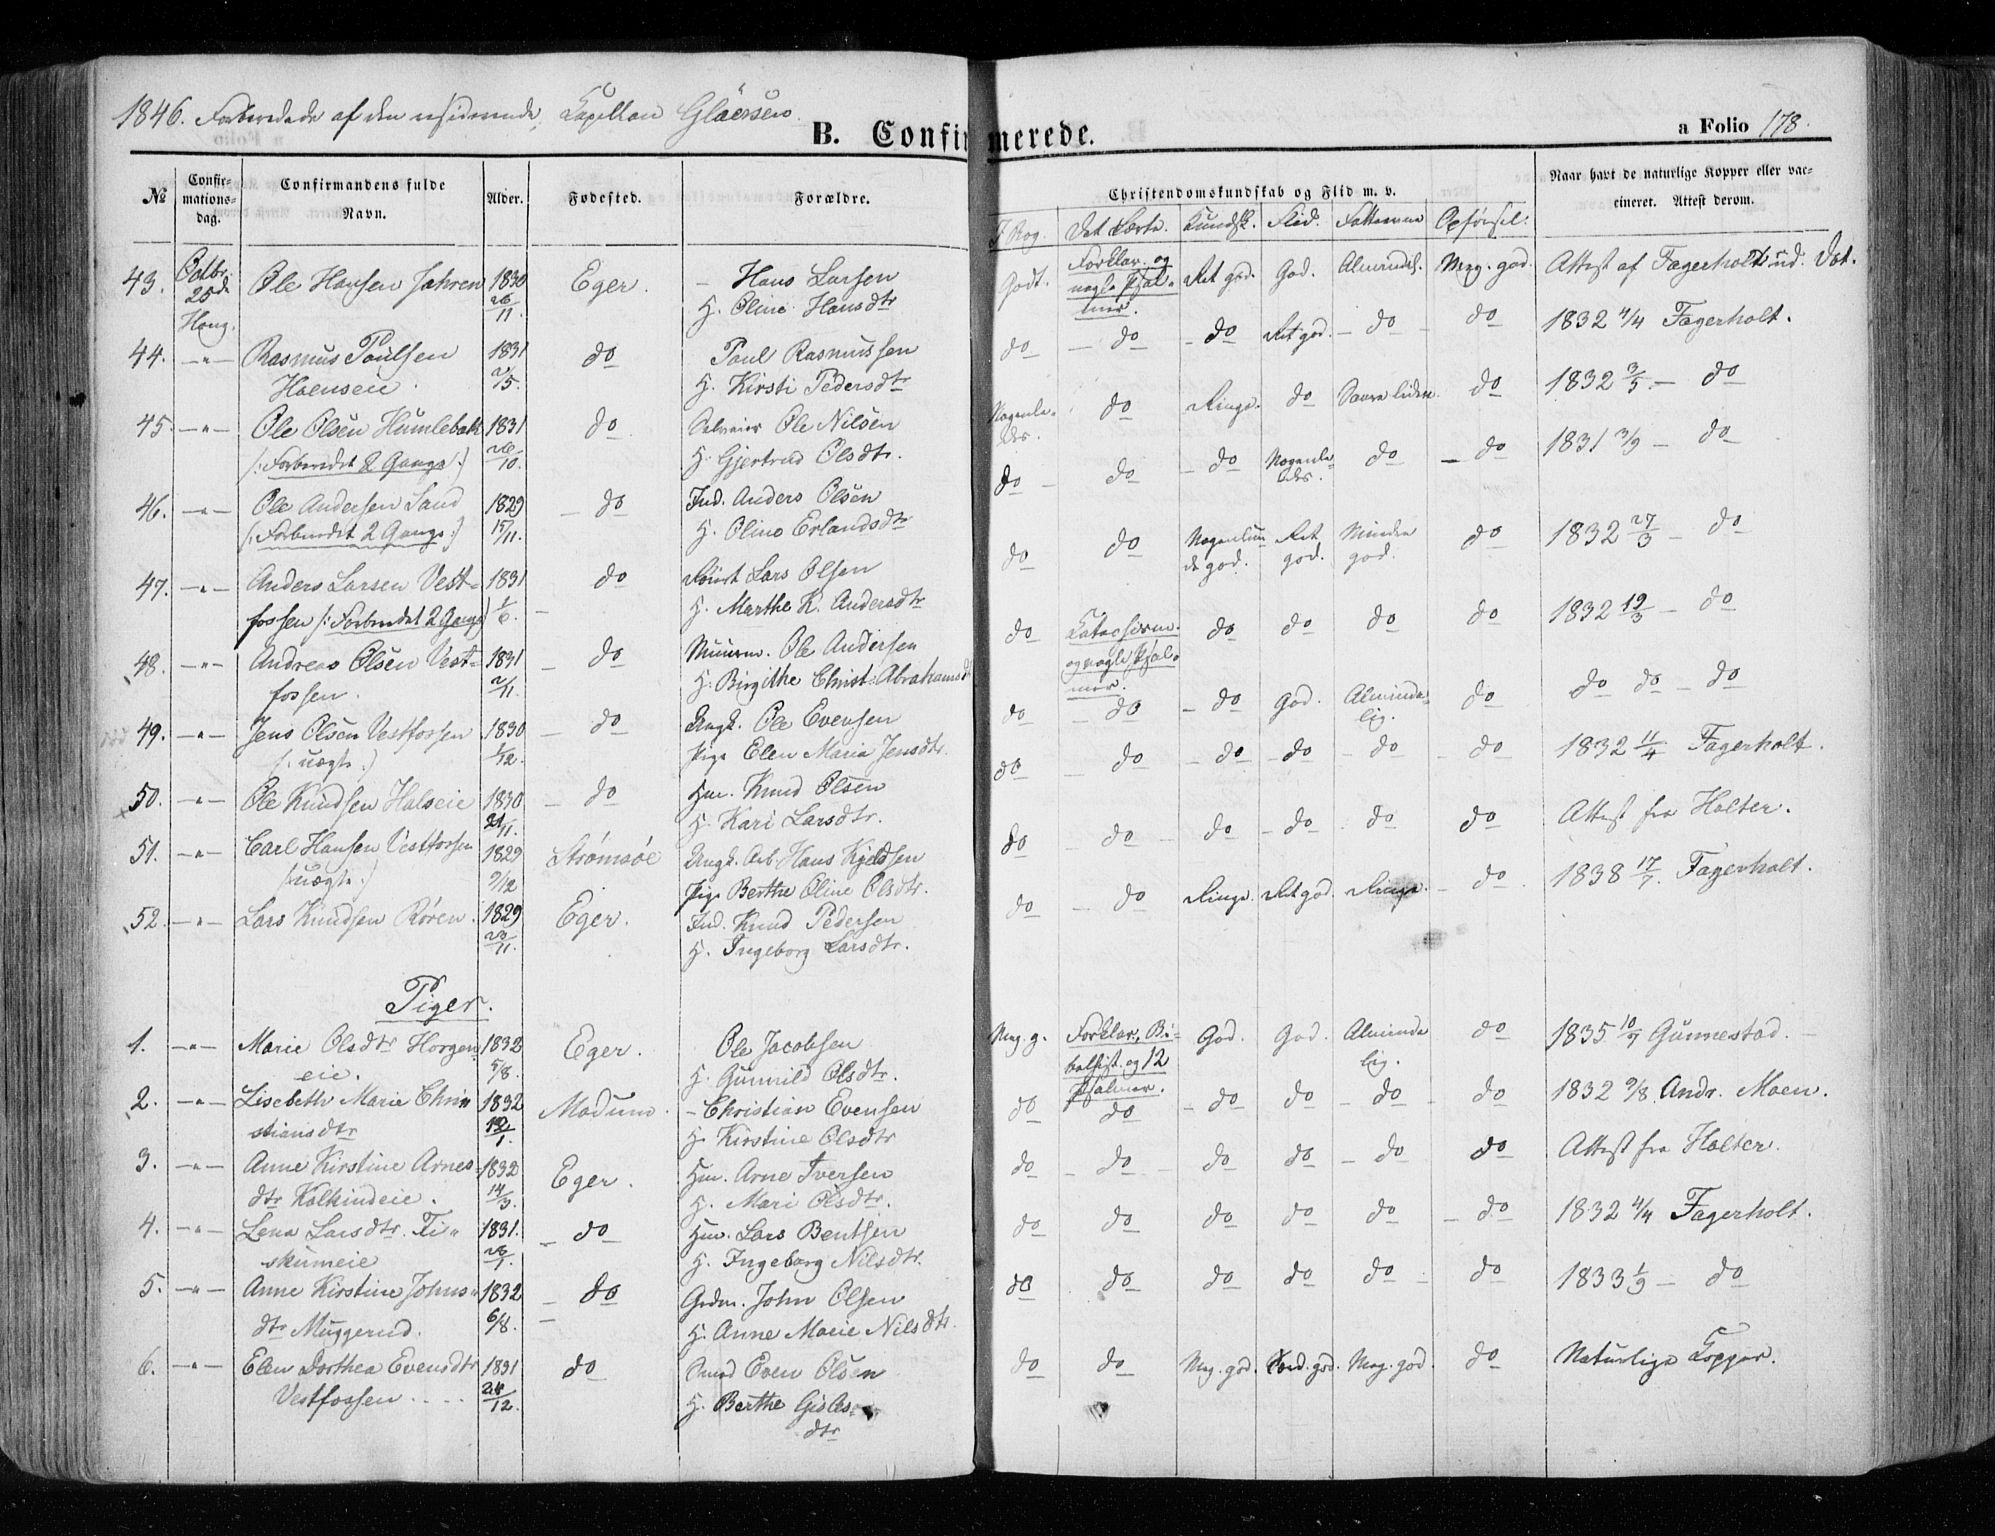 1846. Forberedede af den residerende Capellan Gläersen.
B. Confirmerede.
a Folio 178.
No
Confirmations-dag.
Confirmandens fulde Navn.
Alder.
Fødested.
Forældre.
Christendomskundskab og Flid m. v.
Naar havt de naturlige Kopper eller vaccineret. Attest derom.
Det Lærte. Kundsk. Flid. Fatteevne Opførsel.
43. Octbr. 25de Houg. Ole Hansen Sahren 1830 26/11. Eger. – Hans Larsen
H. Oline Hansdtr
Godt. Forklar. og nogle Psalmer. Ret god. God. Almindel. Meg. god. Attest af Fagerholt ud. Dat.
44. –"– Rasmus Paulsen 1831 2/5. do Paul Rasmussen
Haensen. H. Kirsti Pedersdtr
do – do – do Ret god. – do – do 1832 4/4 Fagerholt.
45. –"– Ole Olsen Humlebæk 1831 26/10. do Ole Nilsen
/: Forberedet 2 Gange :/ H. Gjertrud Olsdtr.
Nogenledes. do Ringe. do do 1832 3/5 – do
46. –"– Ole Andersen Sand 1829 15/11. – do Ind. Anders Olsen
/: Forberedet 2 Gange :/ H. Oline Erlandsdtr
do – do – do Nogenledes. do – do 1831 3/9 – do
47. –"– Anders Larsen Vest- 1831 1/6. – do Lars Olsen
fossen /: Forberedet 2 Gange :/ H. Marthe K. Andersdtr
do do Nogenlunde god. Ret god. Mindre god. do 1832 27/3 – do
48. –"– Andreas Olsen Vest- 1831 2/11. – do Ole Andersen
fossen. H. Birgithe Christ. Abrahamsd
do Catechism. og nogle Psalmer. do do do do 1832 19/3 – do
49. –"– Jens Olsen Vestfossen 1830 1/12. – do Ungk. Ole Evensen
/: uægte :/ Pige Elen Maria Jensdtr.
do – do – do God. Almindelig. do do do – do
50. –"– Ole Knudsen Halseie 1830 21/11. – do Hm. Knud Olsen
H. Kari Larsdtr.
do – do – do – do – do – do 1832 11/4 Fagerholt.
51. –"– Carl Hansen Vestfossen 1829 9/12 Strømsøe Ungk. Arb. Hans Kjeldsen
/: uægte :/ Pige Berthe Oline Olsdtr.
do – do – do – do do do Attest fra Holter.
52. –"– Lars Knudsen Røren. 1829 23/11. Eger. Ind. Knud Pedersen
H. Ingeborg Larsdtr.
do – do Ringe. Ret god. Ringe. – do 1838 17/7. Fagerholt.
Piger.
1. –"– Marie Olsdtr Horgen- 1832 5/8. Eger. Ole Jacobsen
eie. H. Gunnild Olsdtr.
Meg. g. Forklar., Bibelhist. og 12 Psalmer. God. God. Almindelig. do 1835 10/9 Gunnestad.
2. –"– Lisebeth Marie Chri- 1832 12/1. Modum. – Christian Evensen
stiansdtr H. Kirstine Olsdtr
do do – do do – do – do 1832 9/8. Andr. Moen.
3. –"– Anne Kirstine Arnes- 1832 14/3. Eger. Hm. Arne Iversen
dtr Kolkindeie. H. Mari Olsdtr.
do – do – do do – do do Attest fra Holter.
4. –"– Lena Larsdtr. Fi- 1831. 28/1. – do Hm. Lars Bentsen
skumeie H. Ingeborg Nilsdtr.
do do do do do – do 1832 4/4 Fagerholt.
5. –"– Anne Kirstine Johns- 1832 6/8. – do Grdm. John Olsen
dtr Muggerud. H. Anne Marie Nilsdtr.
do do do do do – do 1833 1/9 – do
6. –"– Elen Dorthea Evensdtr 1831 24/12. do Smed Even Olsen
Vestfossen .... H. Berthe Gislesdtr
do do Meg. god. Meg. god. do Naturlige Kopper.